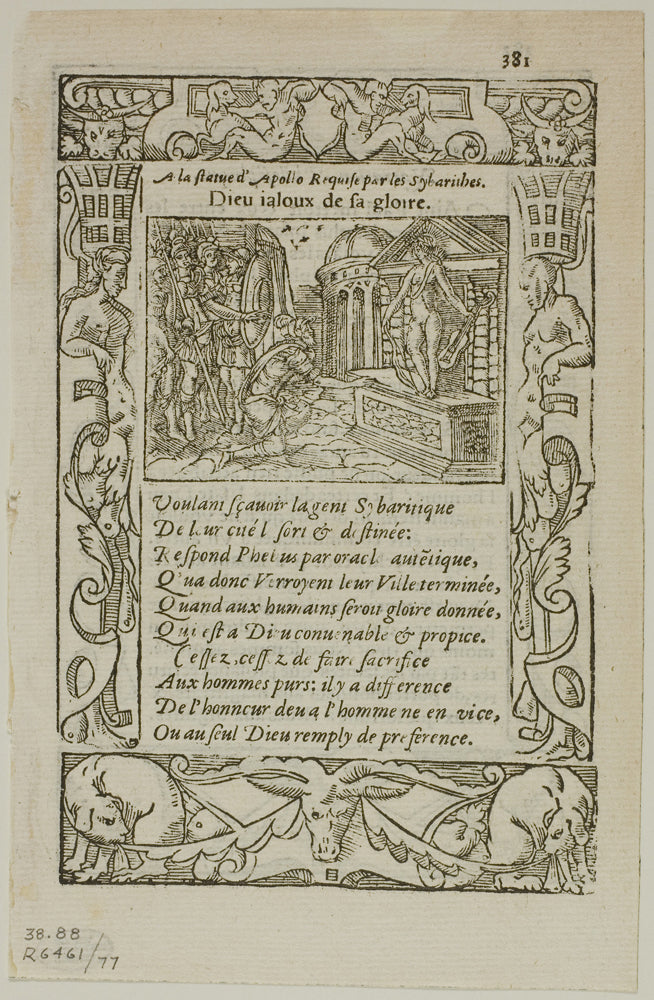 381
A la statue d'Apollo Requise par les Sybarithes.
Dieu ialoux de sa gloire.
Voulant sçavoir la gent Sybaritique
De leur cité l sort & destinée:
Respond Phebus par oracle autẽtique,
Qu'a donc Verroyent leur Ville terminée,
Quand aux humains seroit gloire donnée,
Qui est a Dieu convenable & propice.
Cessez, cessez de faire sacrifice
Aux hommes purs: il y a difference
De l'honneur deu a l'homme ne en vice,
Ou au seul Dieu remply de preference.
38.88
R6461/77